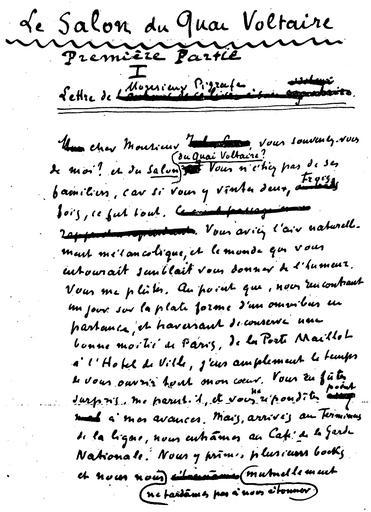 Le Salon du Quai Voltaire
Première Partie
I
Lettre de Monsieur
cher Monsieur vous souvenez-vous
du Quai Voltaire?
de moi? et du Salon Vous n'étiez pas de ses
familiers, car si vous y vîntes deux, trois
fois, ce fut tout.
Vous aviez l'air naturelle-
ment mélancolique, et le monde qui vous
entourait semblait vous donner de l'humeur.
Vous me plûtes. Au point que, nous rencontrant
un jour sur la plate forme d'un omnibus en
partance, et traversant de conserve une
bonne moitié de Paris, de la Porte Maillot
à l'Hotel de Ville, j'eus amplement le temps
de vous ouvrir tout mon cœur. Vous en fûtes
surpris, me parut-il, et vous ne répondîtes point
à mes avances. Mais, arrivés au Terminus
de la ligne, nous entrâmes au Café de la Garde
Nationale. Nous y prîmes plusieurs bocks
et nous nous mutuellement
ne tardâmes pas à nous étonner